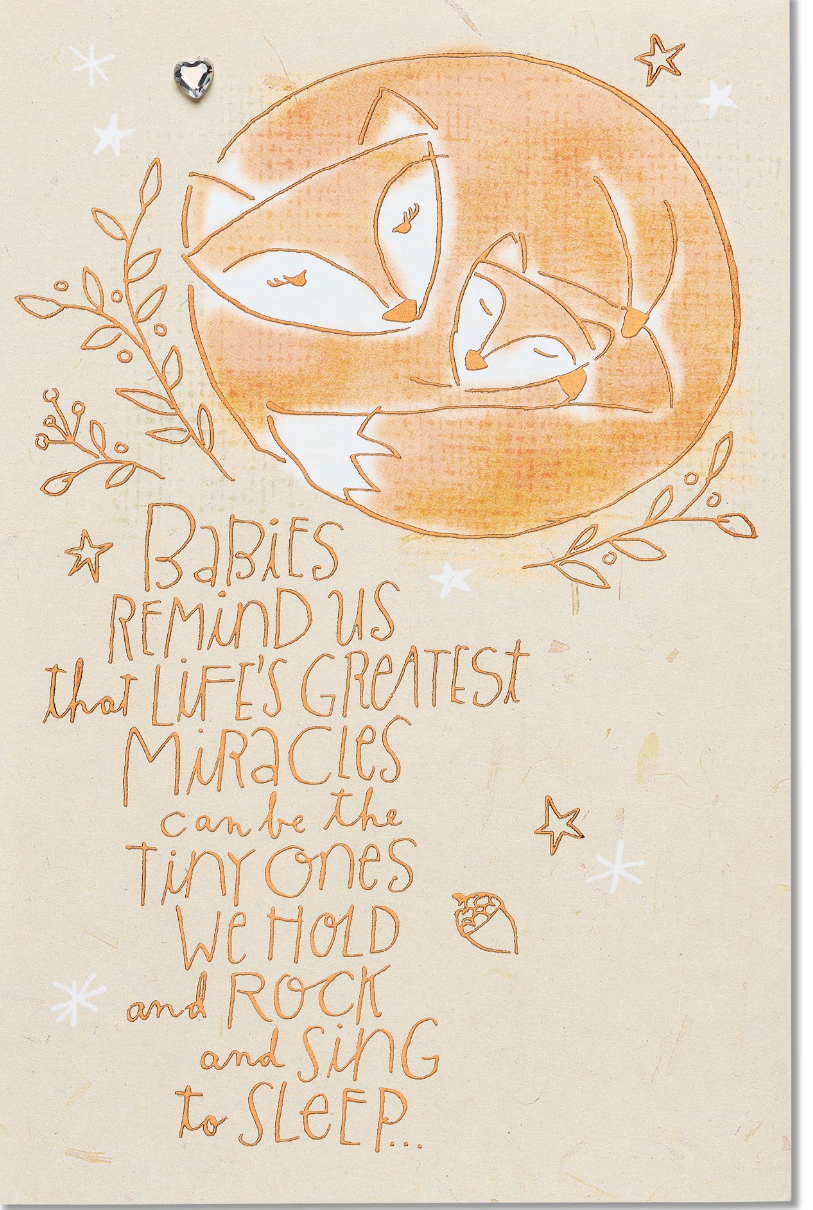 BaBiES
REMinD US
that LiFE'S GREATESt
MiRaCLES
can be the
TiNY ONES
We HOLD
and ROCK
and SiNG
to SLEEP...